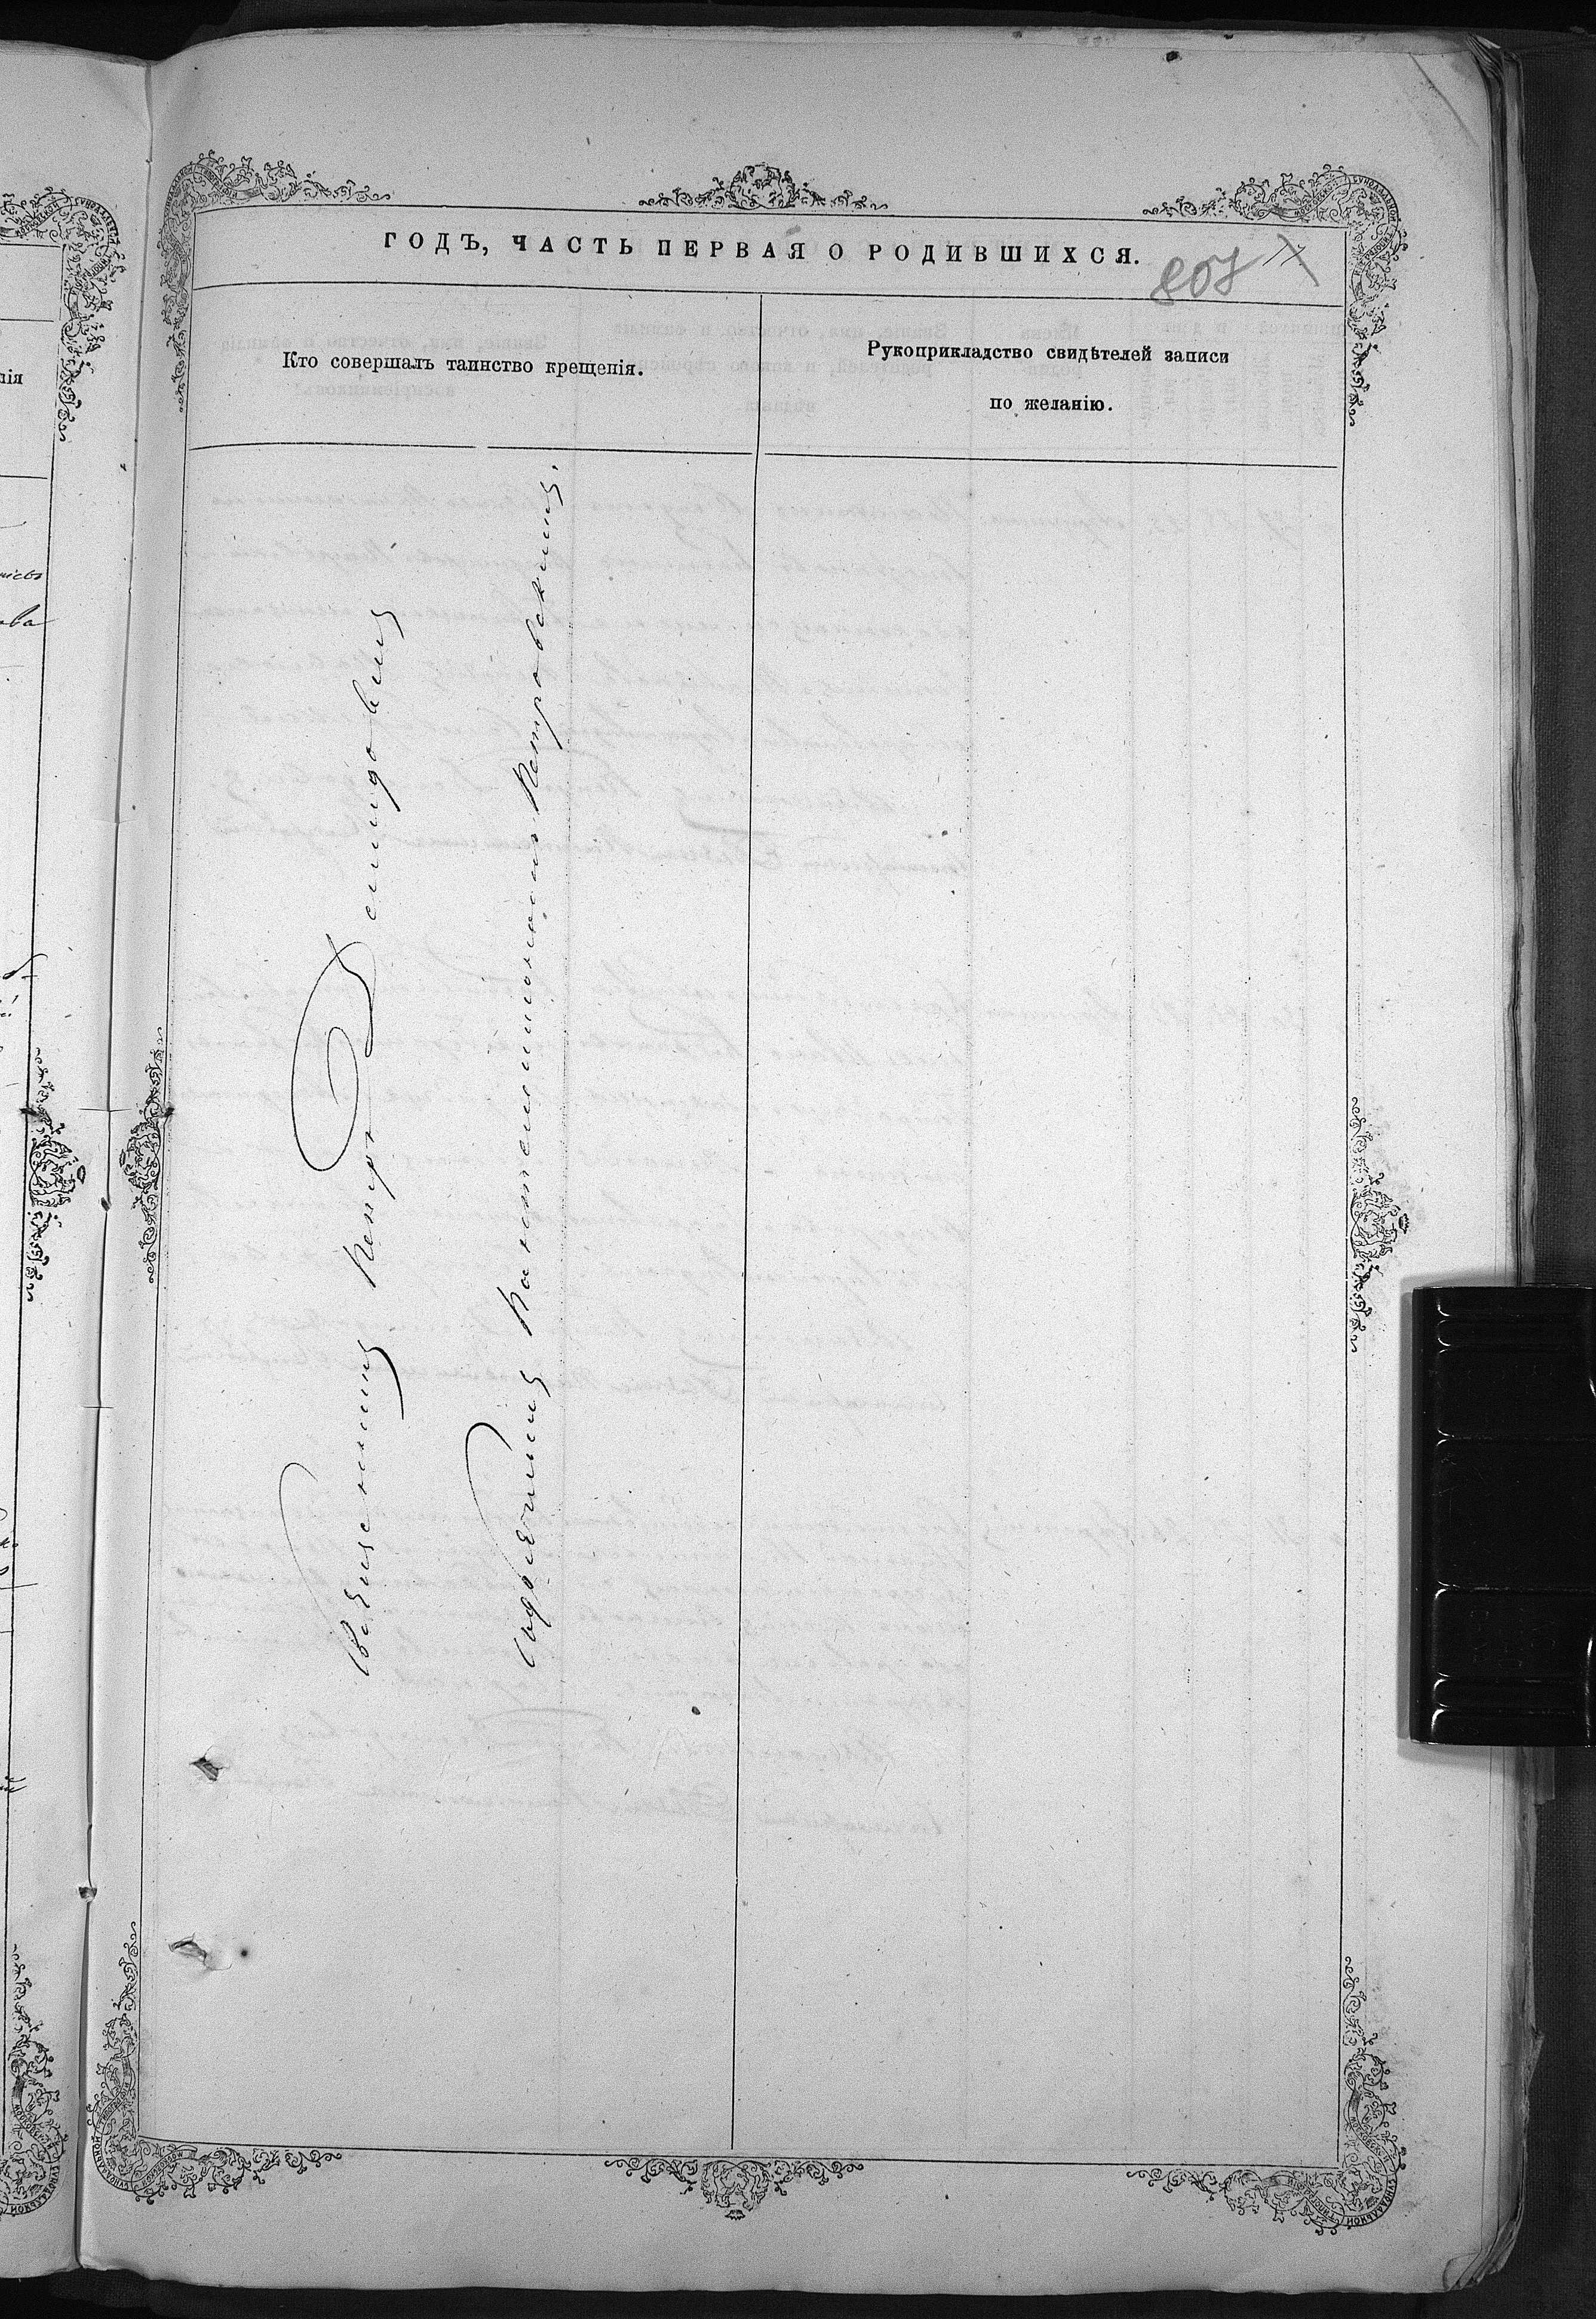 ГОДЪ, ЧАСТЬ ПЕРВАЯ О РОДИВШИХСЯ.
808
Кто совершалъ таинство крещенія.
Рукоприкладство свидѣтелей записи
по желанію.
Священникъ Петръ Демидовичъ
Константинъ Петровскій.
нія